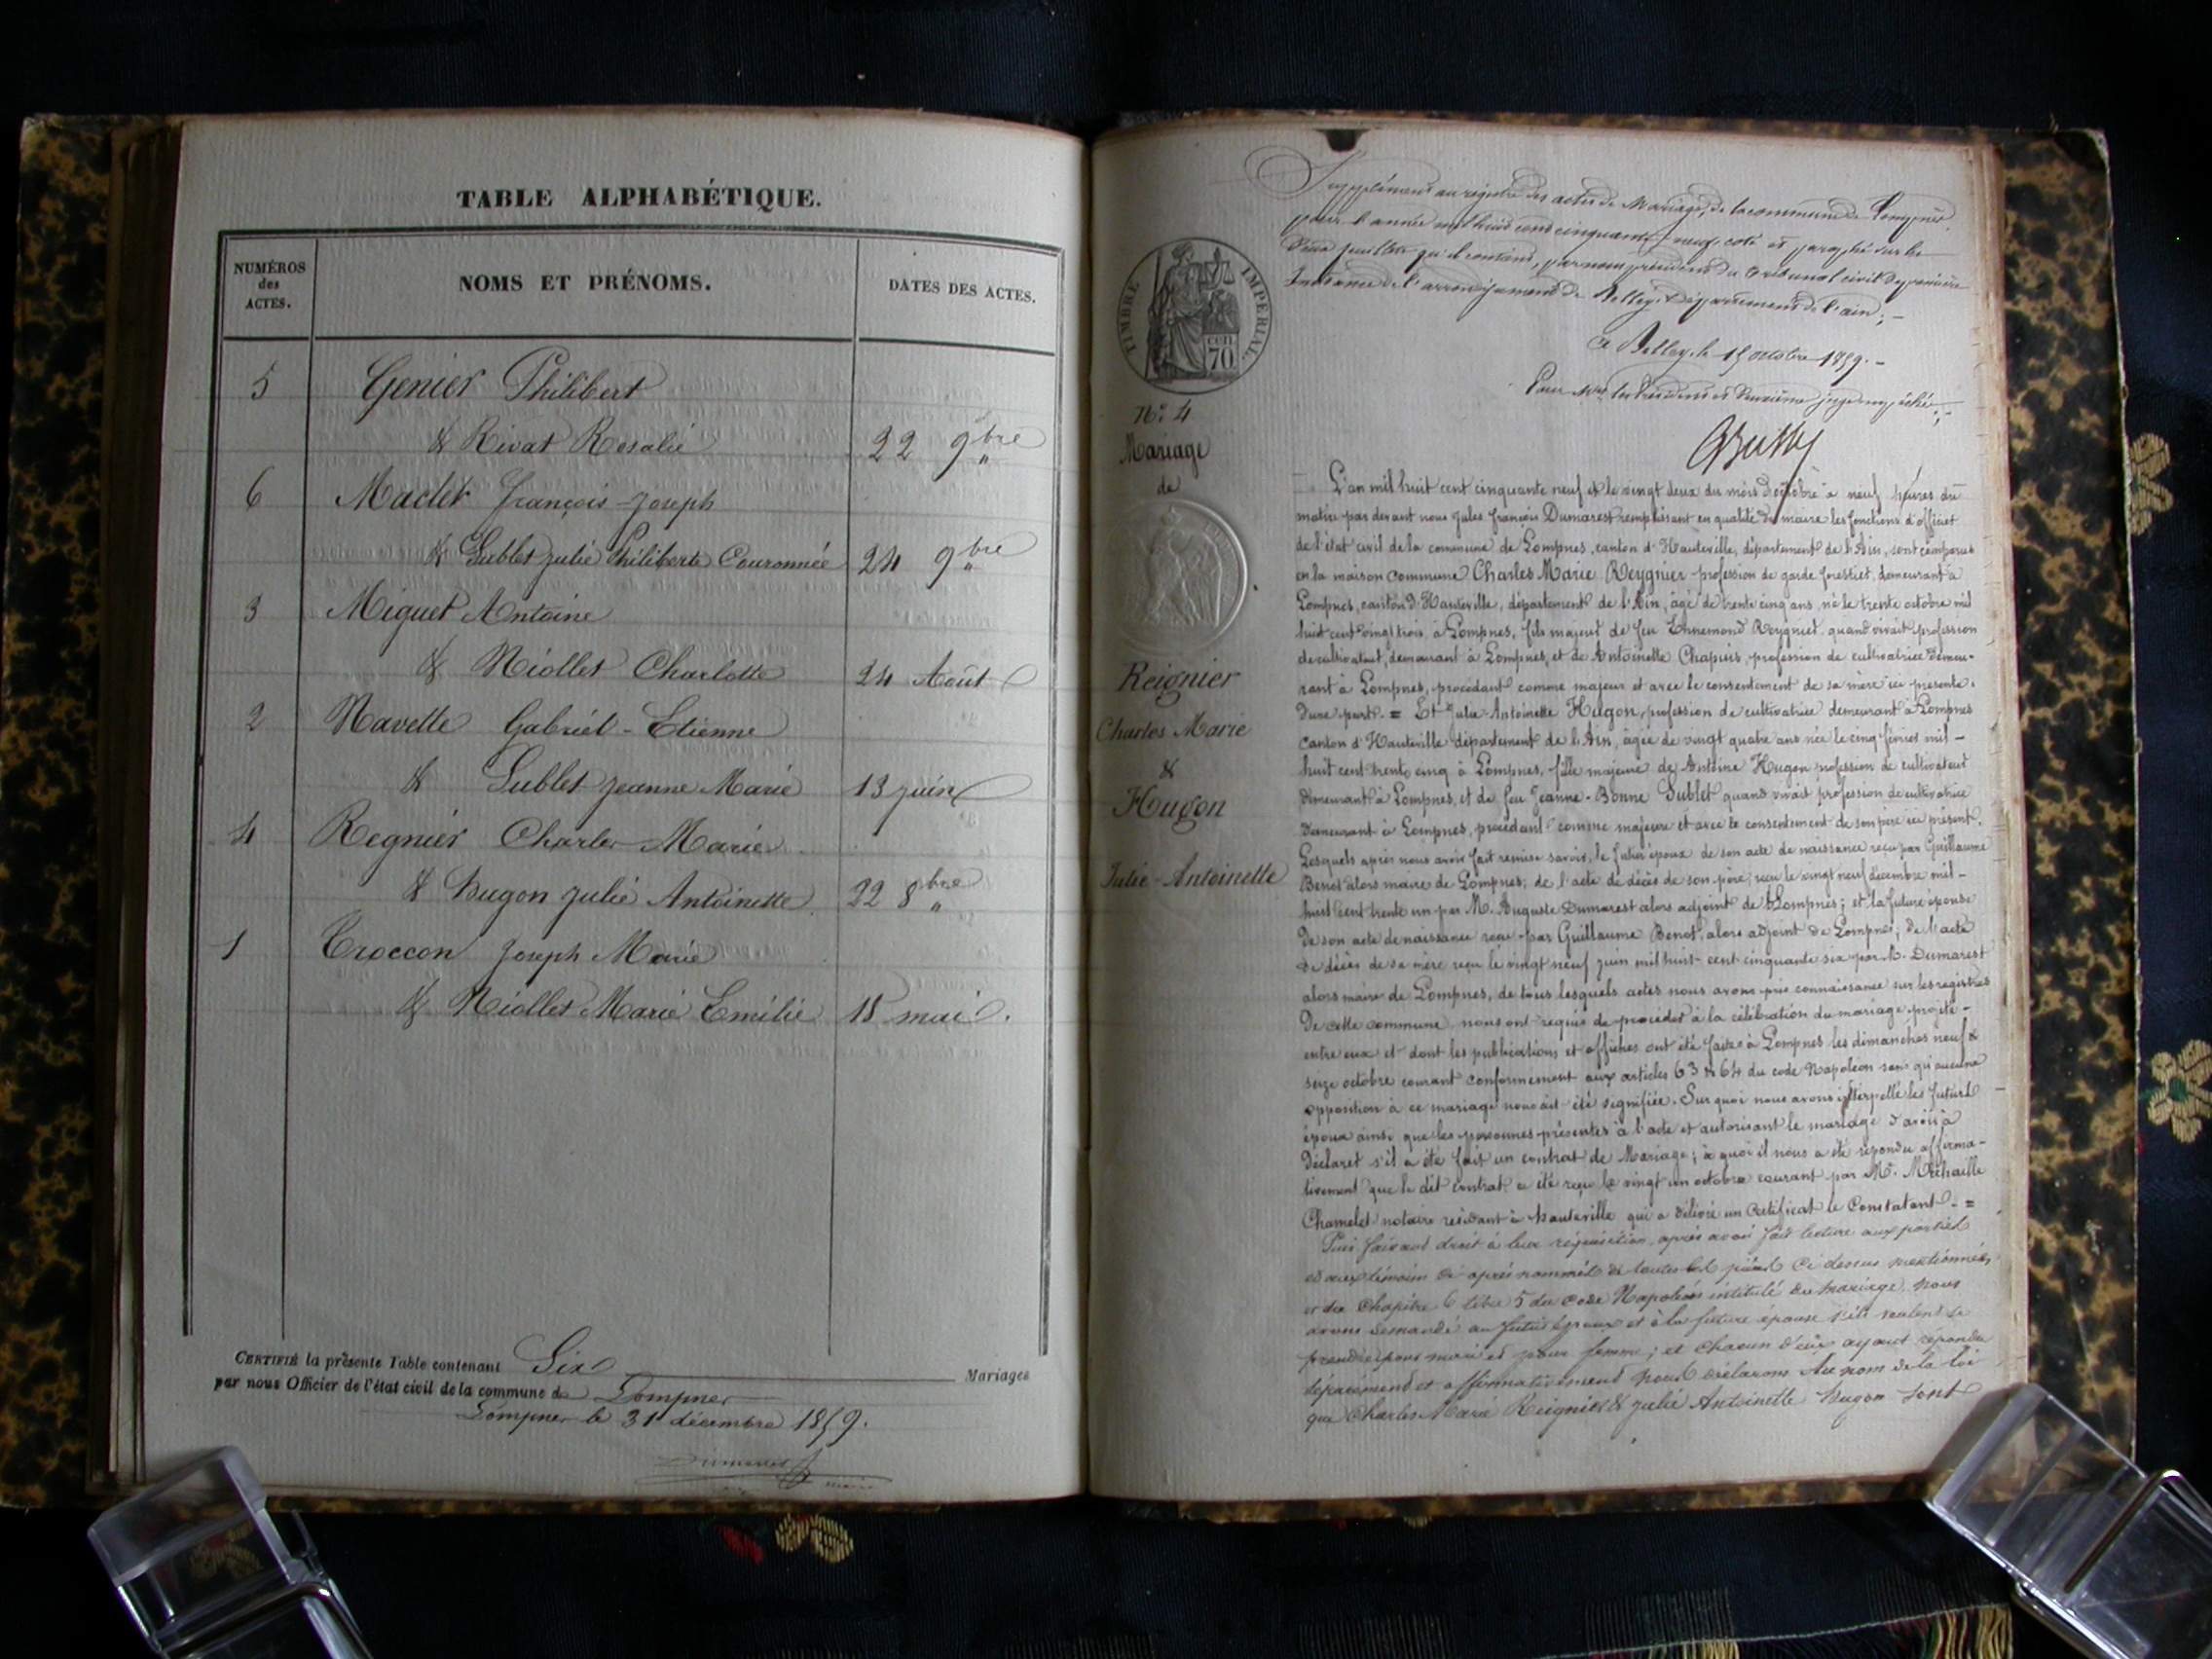 TABLE ALPHABÉTIQUE.
NUMÉROS des ACTES.
NOMS ET PRÉNOMS.
DATES DES ACTES.
5 Genier Philibert
& Rivat Rosalie 22 9bre
6 Maclet François-Joseph
& Sublet Julie Philiberte Couronnée 24 9bre
3 Miguet Antoine
& Niollet Charlotte 24 Août
2 Navette Gabriel-Etienne
& Sublet Jeanne Marie 13 juin
4 Regnier Charles Marie
& Hugon Julie Antoinette 22 8bre
1 Troccon Joseph Marie
& Niollet Marie Emilie 18 mai.
CERTIFIÉ la présente Table contenant Six Mariages
par nous Officier de l'état civil de la commune de Lompnes
Lompnes le 31 décembre 1859.
Dumarest
maire
Supplément au registre des actes de Mariage, de la commune de Lompnes
pour l'année mil huit cent cinquante neuf, coté et paraphé sur les
deux feuillets qu'il contient, par nous président du tribunal civil de première
Instance de l'arrondissement de Belley, département de l'ain;-
a Belley, le 15 octobre 1859.-
Pour Mr le Président et deuxième juge empêché;-
TIMBRE IMPÉRIAL.
70 cen
N° 4
Mariage
de
Reignier
Charles Marie
&
Hugon
Julie-Antoinette
L'an mil huit cent cinquante neuf et le vingt deux du mois d'octobre à neuf heures du
matin par devant nous Jules François Dumarest remplissant en qualité de maire les fonctions d'officier
de l'état civil de la commune de Lompnes, canton d'Hauteville, département de l'Ain, sont comparus
en la maison commune Charles Marie Reygnier profession de garde forestier, demeurant à
Lompnes, canton d'Hauteville, département de l'Ain, âgé de trente cinq ans, né le trente octobre mil
huit cent vingt trois, à Lompnes, fils majeur de feu Ennemond Reygnier quand vivait profession
de cultivateur, demeurant à Lompnes, et de Antoinette Chapuis, profession de cultivatrice demeu-
rant à Lompnes, procédant comme majeur et avec le consentement de sa mère ici présente.
d'une part. = Et Julie-Antoinette Hugon, profession de cultivatrice demeurant à Lompnes
canton d'Hauteville département de l'Ain, âgée de vingt quatre ans née le cinq février mil-
huit cent trente cinq à Lompnes, fille majeure de Antoine Hugon profession de cultivateur
demeurant à Lompnes, et de feu Jeanne-Bonne Sublet quand vivait profession de cultivatrice
demeurant à Lompnes, procédant comme majeure et avec le consentement de son père ici présent.
Lesquels après nous avoir fait remise savoir, le futur époux de son acte de naissance reçu par Guillaume
Benot alors maire de Lompnes; de l'acte de décès de son père, reçu le vingt neuf décembre mil-
huit cent trente un par M. Auguste Dumarest alors adjoint de Lompnes; et la future épouse
de son acte de naissance reçu par Guillaume Benot, alors adjoint de Lompnes; de l'acte
de décès de sa mère reçu le vingt neuf juin mil huit cent cinquante six par M. Dumarest
alors maire de Lompnes, de tous lesquels actes nous avons pris connaissance sur les registres
de cette commune, nous ont requis de procéder à la célébration du mariage projeté-
entre eux et dont les publications et affiches ont été faites à Lompnes les dimanches neuf &
seize octobre courant conformément aux articles 63 & 64 du code Napoléon sans qu'aucune
opposition à ce mariage nous ait été signifiée. Sur quoi nous avons interpellé les futurs
époux ainsi que les personnes présentes à l'acte et autorisant le mariage d'avoir à
déclarer s'il a été fait un contrat de Mariage; à quoi il nous a été répondu affirma-
tivement que le dit contrat a été reçu le vingt un octobre courant par Me.
Chamelet notaire résidant à hauteville qui a délivré un certificat le Constatant. =
Puis faisant droit à leur réquisition, après avoir fait lecture aux parties
et aux témoins ci après nommés de toutes les pièces ci dessus mentionnées,
et du Chapitre 6 titre 5 du code Napoléon intitulé du mariage, nous
avons demandé au futur époux et à la future épouse s'ils veulent se
prendre pour mari et pour femme; et chacun d'eux ayant répondu
séparément et affirmativement nous déclarons Au nom de la loi
que Charles Marie Reignier & Julie Antoinette Hugon sont